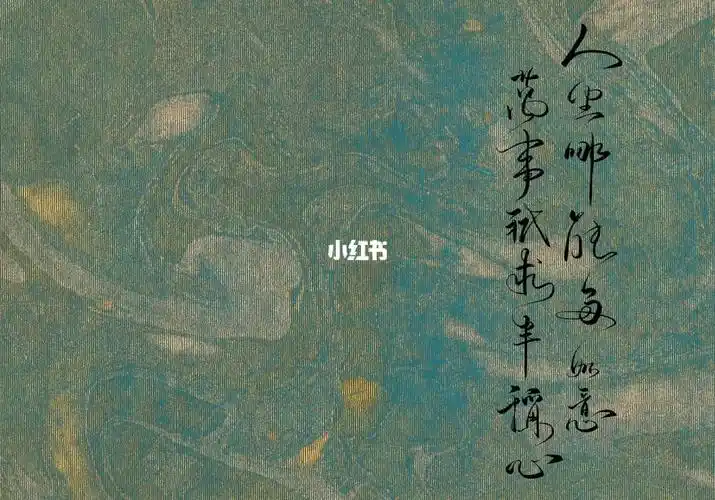 人生哪能多如意
萬事祇求半稱心
小红书